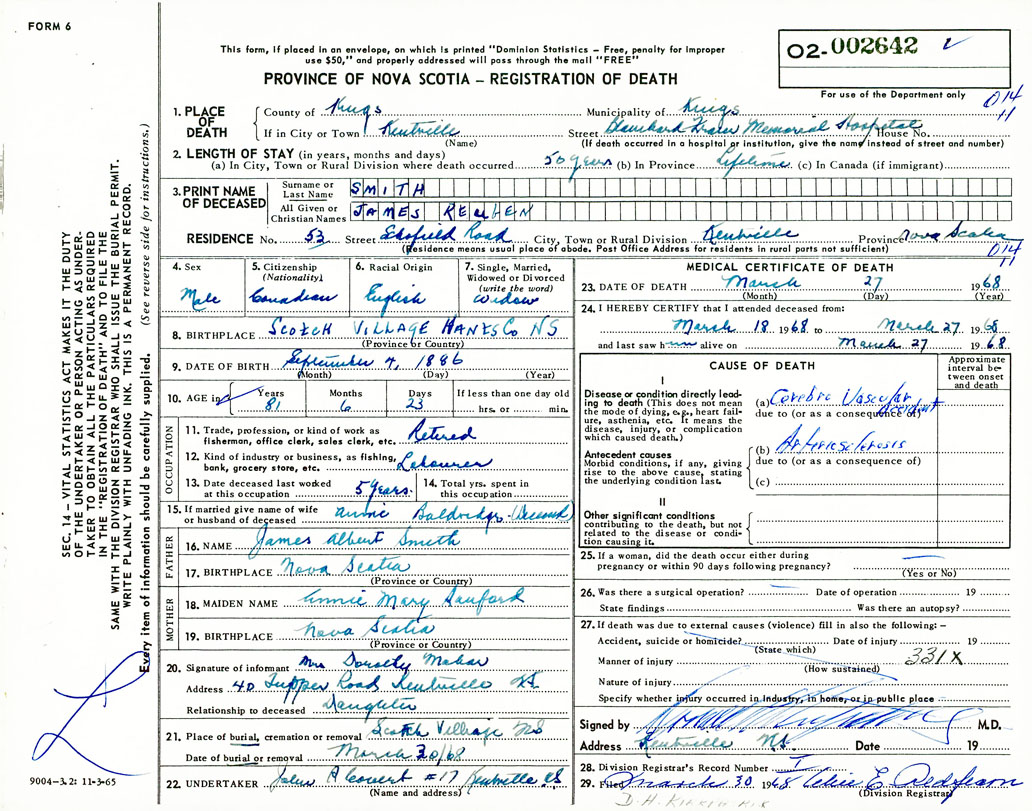 FORM 6
This form, if placed in an envelope, on which is printed "Dominion Statistics – Free, penalty for improper
use $50," and properly addressed will pass through the mail "FREE"
PROVINCE OF NOVA SCOTIA – REGISTRATION OF DEATH
O2-002642
For use of the Department only
014
11
1. PLACE OF DEATH
County of Kings Municipality of Kings
If in City or Town Kentville Street Blanchard Fraser Memorial Hospital House No.
(Name) (If death occurred in a hospital or institution, give the name instead of street and number)
2. LENGTH OF STAY (in years, months and days)
(a) In City, Town or Rural Division where death occurred 50 years (b) In Province Lifetime (c) In Canada (if immigrant)
3. PRINT NAME OF DECEASED
Surname or Last Name SMITH
All Given or Christian Names JAMES REUBEN
RESIDENCE No. 53 Street Road City, Town or Rural Division Kentville Province Nova Scotia
(Residence means usual place of abode. Post Office Address for residents in rural parts not sufficient)
014
11
4. Sex
Male
5. Citizenship
(Nationality)
Canadian
6. Racial Origin
English
7. Single, Married,
Widowed or Divorced
(write the word)
Widow
8. BIRTHPLACE SCOTCH VILLAGE HANTS Co NS
(Province or Country)
9. DATE OF BIRTH September 4, 1886
(Month) (Day) (Year)
10. AGE in
Years Months Days If less than one day old
81 6 23 hrs. or min.
OCCUPATION
11. Trade, profession, or kind of work as
fisherman, office clerk, sales clerk, etc. Retired
12. Kind of industry or business, as fishing,
bank, grocery store, etc. Labourer
13. Date deceased last worked
at this occupation 5 years.
14. Total yrs. spent in
this occupation
15. If married give name of wife
or husband of deceased Annie
FATHER
16. NAME James Albert Smith
17. BIRTHPLACE Nova Scotia
(Province or Country)
MOTHER
18. MAIDEN NAME Annie Mary Sanford
19. BIRTHPLACE Nova Scotia
(Province or Country)
20. Signature of informant Mrs Dorothy
Address 40 Tupper Road Kentville NS
Relationship to deceased Daughter
21. Place of burial, cremation or removal Scotch Village NS
Date of burial or removal March 30/68
22. UNDERTAKER John A #17 Kentville NS
(Name and address)
MEDICAL CERTIFICATE OF DEATH
23. DATE OF DEATH March 27 1968
(Month) (Day) (Year)
24. I HEREBY CERTIFY that I attended deceased from:
March 18 1968 to March 27 1968
and last saw him alive on March 27 1968
CAUSE OF DEATH
Approximate
interval be-
tween onset
and death
I
Disease or condition directly lead-
ing to death (This does not mean
the mode of dying, e.g., heart fail-
ure, asthenia, etc. It means the
disease, injury, or complication
which caused death.)
(a) Cerebro Vascular Accident
due to (or as a consequence of)
Antecedent causes
Morbid conditions, if any, giving
rise to the above cause, stating
the underlying condition last.
(b) Arteriosclerosis
due to (or as a consequence of)
(c)
II
Other significant conditions
contributing to the death, but not
related to the disease or condi-
tion causing it.
25. If a woman, did the death occur either during
pregnancy or within 90 days following pregnancy?
(Yes or No)
26. Was there a surgical operation? Date of operation 19
State findings Was there an autopsy?
27. If death was due to external causes (violence) fill in also the following: –
Accident, suicide or homicide? Date of injury 19
(State which)
Manner of injury 331X
(How sustained)
Nature of injury
Specify whether injury occurred in industry, in home, or in public place
Signed by M.D.
Address Kentville N.S. Date 19
28. Division Registrar's Record Number
29. Filed March 30 1968 E.
(Division Registrar)
SEC. 14 – VITAL STATISTICS ACT MAKES IT THE DUTY
OF THE UNDERTAKER OR PERSON ACTING AS UNDER-
TAKER TO OBTAIN ALL THE PARTICULARS REQUIRED
IN THE "REGISTRATION OF DEATH" AND TO FILE THE
SAME WITH THE DIVISION REGISTRAR WHO SHALL ISSUE THE BURIAL PERMIT.
WRITE PLAINLY WITH UNFADING INK. THIS IS A PERMANENT RECORD.
Every item of information should be carefully supplied. (See reverse side for instructions.)
9004-3.2: 11-3-65